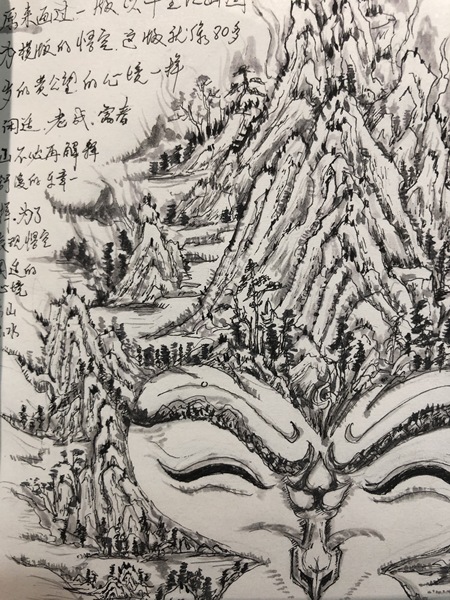 来画过一版以千里江山
为模版的悟空 这版就像80多
岁的黄公望的心境一样
闲逸、老成、富春
山不必再解释
的
为了
现悟空
逸的
心境
山
水